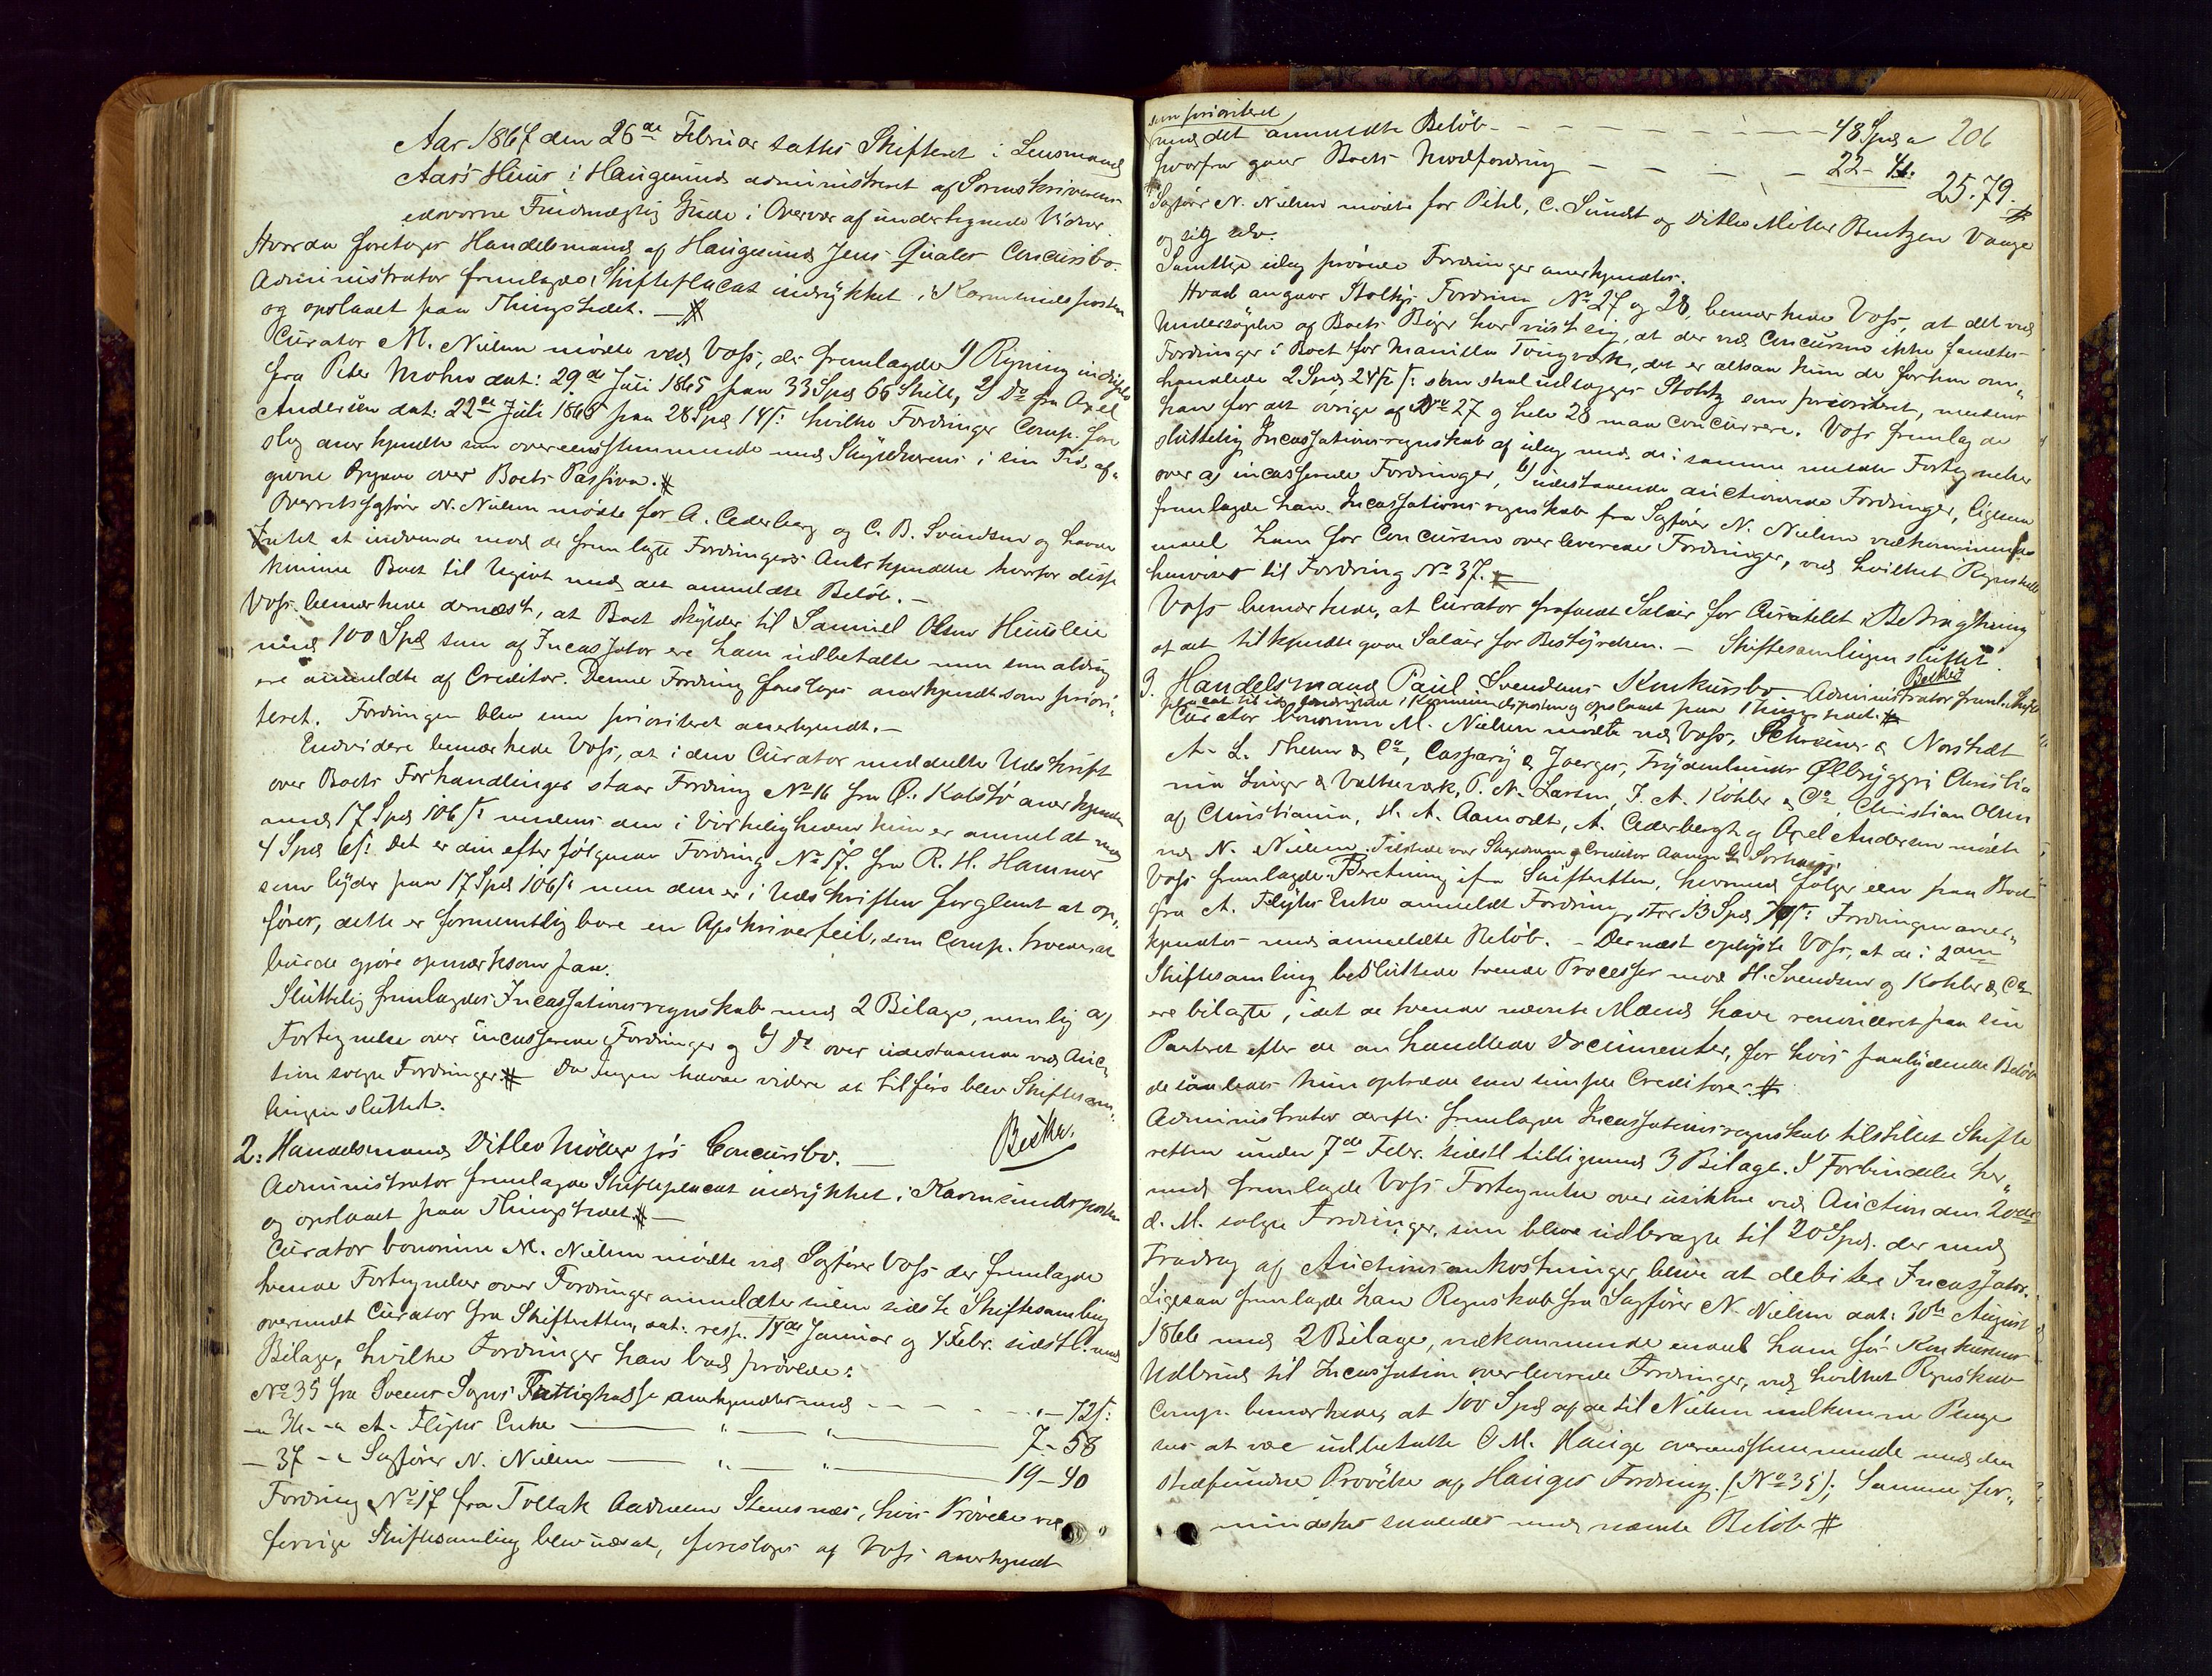 Aar 1867 den 26de Februar sattes Skifteret i Lensmand
Aars Huus i Haugesund administreret af Sorenskriverens
edsvorne Fuldmægtig Gude i Overvær af undertegnede Vidner.
Hvorda foretoges Handelsmand af Haugesund Jens Qvales Concursbo.
Administrator fremlagde Skifteplacat indrykket i Karmsundsposten
og opslaaet paa Thingstedet. — #
Curator M. Nielsen mødte ved Voss, der fremlagde 1) Regning
fra Peder Mohn dat: 29de Juli 1865 paa 33 Spd 66 Skill, 2) Do fra Axel
Andersen dat: 22de Juli 1865 paa 28 Spd 14 s: hvilke Fordringer Comp. fore-
slog anerkjendte som overeensstemmende med Skyldnerens i sin Tid af-
givne Opgave over Boets Passiva. #
Overretssagfører N. Nielsen mødte for A. Cederberg og C. B. Svendsen og havde
Intet at indvende mod de fremlagte Fordringers Anerkjendelse hvorfor disse
kunne Boet til Udgivt med det anmeldte Beløb. —
Voss bemærkede dernæst, at Boet skylder til Samuel Olsen Huusleie
med 100 Spd som af Incassator ere ham udbetalte men som aldrig
ere anmeldte af Creditor. Denne Fordring foresloges anerkjendt som priori-
teret. Fordringen blev som prioriteret anerkjendt. —
Endvidere bemærkede Voss, at i den Curator meddelte Udskrift
over Boets Forhandlinger staar Fordring No 16 fra Ø. Kalstø anerkjendt
med 17 Spd 106 s: medens den i Virkeligheden kun er anmeldt med
4 Spd 6 s: Det er den efterfølgende Fordring No 17. fra R. H. Hammer
som lyder paa 17 Spd 106 s: men den er i Udskriften forglemt at op-
føres, dette er formentlig bare en Afskriverfeil, som Comp. troede at
burde gjøre opmærksom paa.
Sluttelig fremlagdes Incassationsregnskab med 2 Bilage, nemlig a)
Fortegnelse over incasserede Fordringer og b) Do over udestaaende ved Auc-
tion solgte Fordringer # Da Ingen havde videre at tilføre blev Skiftesam-
lingen sluttet.
2. Handelsmand Ditlev Møller jr's Concursbo. —
Administrator fremlagde Skifteplacat indrykket i Karmsundsposten
og opslaaet paa Thingstedet # —
Curator bonorum M. Nielsen mødte ved Sagfører Voss der fremlagde
tvende Fortegnelser over Fordringer anmeldte siden sidste Skiftesamling
oversendt Curator fra Skifteretten, dat. resp. 14de Januar og 4 Febr. sidstl. med
Bilage, hvilke Fordringer han bad prøvede:
No 35 fra Sveens Sogns Fattigkasse anerkjendtes med — — — „ — 72 s:
— 36 — „ A. Flyhs Enke — „ — „ — 7 — 58
— 37 — „ Sagfører N. Nielsen — „ — „ — 19 — 40
Fordring No 17 fra Tollak Aadnesen Stensnæs, hvis Prøvelse ved
forrige Skiftesamling blev udsat, foresloges af Voss anerkjendt
206
som prioriteret
med det anmeldte Beløb — — — — — 48 Spd „
hvorfra gaar Boets Modfordring — — — — 22 - 41.
25. 79. #
Sagfører N. Nielsen mødte for Pihl, C. Sundt og Ditlev Møller Bentzen Vaage
og sig selv.
Samtlige idag prøvede Fordringer anerkjendtes.
Hvad angaar Stoltz's Fordring No 27 og 28, bemærkede Voss, at det ved
Undersøgelse af Boets Bøger har viist sig, at der ved Concursen ikke fandtes
Fordringer i Boet for Manilla Tougværk, det er altsaa kun de forhen om-
handlede 2 Spd 24½ s: som skal udlægges Stoltz som prioriteret, medens
han for det øvrige af No 27 og hele 28 maa concurrere. Voss fremlagde
sluttelig Incassationsregnskab af idag med de i samme meldte Fortegnelser
over a) incasserede Fordringer, b) udestaaende auctionerede Fordringer, ligesom
fremlagde han Incassationsregnskab fra Sagfører N. Nielsen vedkommende
mod ham før Concursen overleverede Fordringer, ved hvilket Regnskab
henvises til Fordring No 37. #
Voss bemærkede, at Curator frafaldt Salair for Curatelet i Betragtning
af det tilkjendte gode Salair for Bestyrelsen. — Skiftesamlingen sluttet.
3. Handelsmand Paul Svendsens Konkursbo. Administrator freml. Skifte-
placat til idag indrykket i Karmsundsposten og opslaaet paa Thingstedet. #
Curator bonorum M. Nielsen mødte ved Voss, Schreiner & Norstedt
A. L. Thune & Co, Caspary & Joerges, Frydenlunds Ølbryggeri Christia-
nia Luger & Valseværk, P. N. Larsen, J. A. Köhler & Co, Christian Olsen
af Christiania, H. A. Aamodt, A. Cederbergh og Axel Andersen mødte
ved N. Nielsen. Tilstede var Skyldneren og Creditor Aanen Gs Sørhaug.
Voss fremlagde Beretning ifra Skifteretten, hvormed følger een paa Boet
fra A. Flyhs Enke anmeldt Fordring, stor 13 Spd 70 s: Fordringen aner-
kjendtes med anmeldte Beløb. — Dernæst oplyste Voss, at de i
Skiftesamling besluttede tvende Processer mod H. Svendsen og Köhler & Co
ere bilagte, idet de tvende nævnte Mænd have renonceret paa sin
Panteret efter de omhandlede Documenter, for hvis paalydende Beløb
de saaledes kun optræde som simple Creditorer. #
Administrator derefter fremlagde Incassationsregnskab tilstillet Skifte-
retten under 7de Febr. sidstl. tilligemed 3 Bilage. I Forbindelse her-
med fremlagde Voss Fortegnelse over usikkre ved Auction den 20de
d. M. solgte Fordringer, som bleve udbragte til 20 Spd. der med
Fradrag af Auctionsomkostninger, blive at debitere Incassator.
Ligesaa fremlagde han Regnskab fra Sagfører N. Nielsen dat: 30te August
1866 med 2 Bilage, vedkommende ham før Konkursens
Udbrud til Incassation overleverede Fordringer, ved hvilket Regnskab
Comp. bemærkede, at 100 Spd af de til Nielsen indkomne Penge
sees at være udbetalte O. M. Hauge overeensstemmende med den
stedfundne Prøvelse af Hauges Fordring. (No 35); Samme for-
mindskes saaledes med nævnte Beløb #